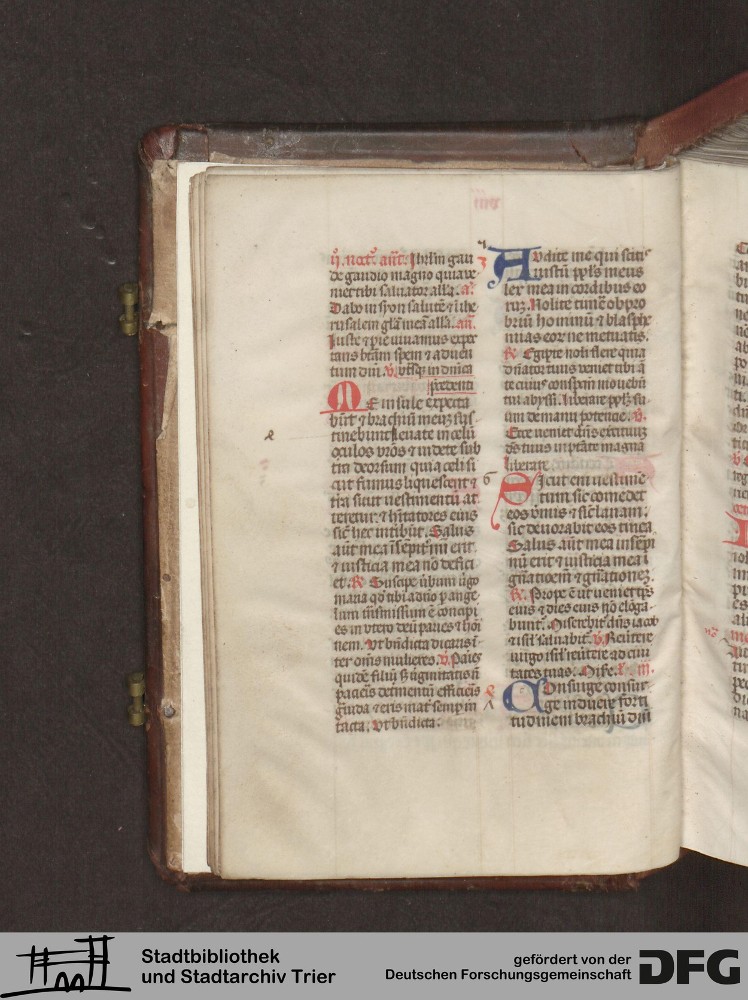 viii
ij. noct. ant. Jhrlm gau
de gaudio magno quia ve
niet tibi saluator alla. a.
Dabo in syon salutē ⁊ ihe
rusalem glām meā alla. an.
Juste ⁊ pie viuamus expec
tans btām spem ⁊ aduen
tum dnī. v. in dnīca
precedenti
Me insule expecta
būt ⁊ brachiū meuꝫ sus
tinebunt leuate in celū
oculos vrōs ⁊ videte sub
tra deorsum quia celi si
cut fumus liquescent ⁊
tra sicut uestimentū at
teretur. ⁊ hītatores eius
sic hec intibūt. Salus
aūt mea in erit
⁊ iusticia mea nō defici
et. R. Suscipe ūbum ūgo
maria qd tibi a dno p ange
lum tūsmissum ē concipi
es in vtero deū paries ⁊ hoī
nem. Vt bndicta dicaris ī
ter omīs mulieres. v. Paries
quidē filiū ꝫ uginitatis nō
pacieis detrimentū efficieis
guida ⁊ eris mat semp in
tacta. Vt bndicta.
Audite me qui scitis
iustū ppls meus
lex mea in cordibus eo
rum. Nolite timē obpro
briū hominū ⁊ blasphe
mias eor ne metuatis.
R. Egipte noli flere quia
dnator tuus veniet tibi ā
te cuius conspcū mouebūt
tur abyssi. liberare pplꝫ su
um de manu potencie. v.
Ecce veniet dns exercituū
ds tuus in ptāte magna
liberare
6
Sicut em uestimē
tum sic comedet
eos vmis ⁊ sic lanam
sic deuorabit eos tinea
Salus aūt mea in sempi
nū erit ⁊ iusticia mea ī
gnatioem ⁊ gnationeꝫ.
R. Prope ē ut ueniet tps
eius ⁊ dies eius nō eloga
bunt. Miserebit dns iacob
⁊ isrl saluabit. v. Reuertere
uirgo isrl reutere ad ciui
tates tuas. Mise. l. iii.
Consurge consur
ge induere forti
tudinem brachiū dnī
Stadtbibliothek
und Stadtarchiv Trier
gefördert von der
Deutschen Forschungsgemeinschaft
DFG